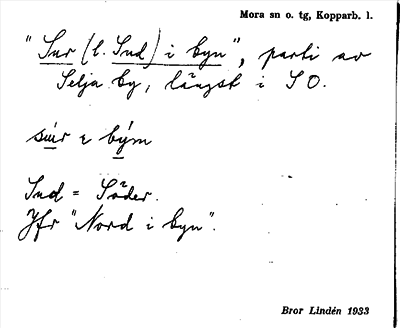 Mora sn o. tg, Kopparb. l.
"Sur (l. Sud) i byn", parti av
Selja by, längst i SO.
súr e bým
Sud = Söder.
Jfr "Nord i byn".
Bror Lindén 1933